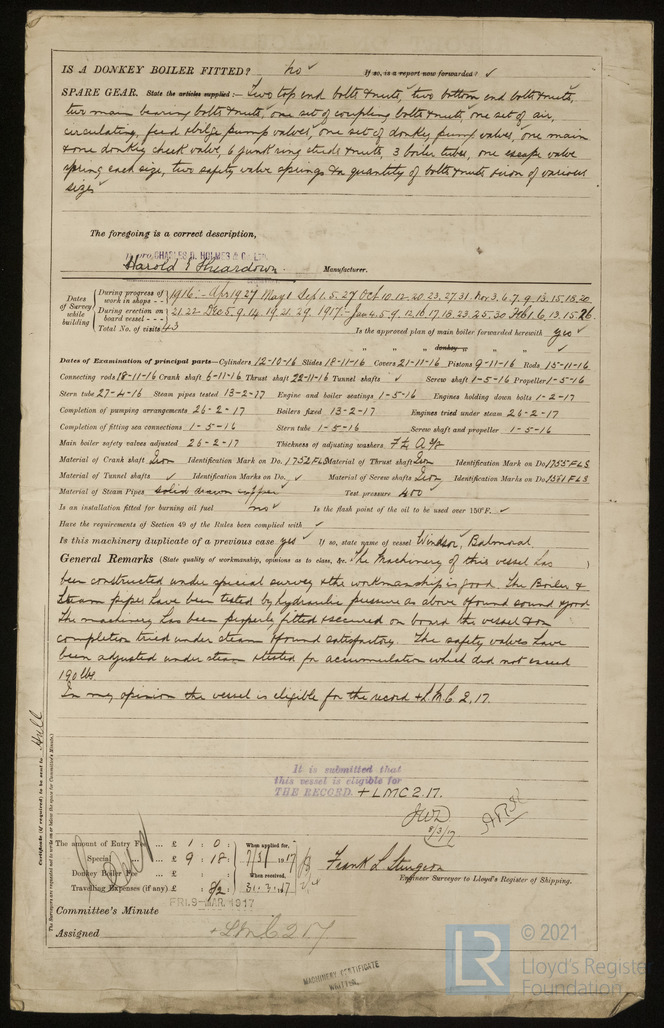 IS A DONKEY BOILER FITTED? no ✓ If so, is a report now forwarded? ✓
SPARE GEAR. State the articles supplied:— Two top end bolts & nuts, two bottom end bolts & nuts,
two main bearing bolts & nuts, one set of coupling bolts & nuts, one set of air,
circulating, feed & bilge pump valves, one set of donkey pump valves, one main
& one donkey check valve, 6 junk ring studs & nuts, 3 boiler tubes, one escape valve
spring each size, two safety valve springs & a quantity of bolts & nuts & iron of various
sizes
The foregoing is a correct description,
pro. CHARLES D. HOLMES & CO. LTD.
Harold E Sheardown. Manufacturer.
Dates of Survey while building
During progress of work in shops - - 1916:- Apr 19 27 May 1 Sep 1. 5. 27 Oct 10. 12. 20. 23. 27. 31. Nov 3. 6. 7. 9. 13. 15. 18. 20.
During erection on board vessel - - - 21. 22. Dec 5. 9. 14. 19. 21. 29. 1917:- Jan 4. 5. 9. 12. 16. 17. 18. 23. 25. 30 Feb 1. 6. 13. 15. 26.
Total No. of visits 43 Is the approved plan of main boiler forwarded herewith yes ✓
" " " donkey " " " ✓
Dates of Examination of principal parts—Cylinders 12-10-16 Slides 18-11-16 Covers 21-11-16 Pistons 9-11-16 Rods 15-11-16
Connecting rods 18-11-16 Crank shaft 6-11-16 Thrust shaft 22-11-16 Tunnel shafts ✓ Screw shaft 1-5-16 Propeller 1-5-16
Stern tube 27-4-16 Steam pipes tested 13-2-17 Engine and boiler seatings 1-5-16 Engines holding down bolts 1-2-17
Completion of pumping arrangements 26-2-17 Boilers fixed 13-2-17 Engines tried under steam 26-2-17
Completion of fitting sea connections 1-5-16 Stern tube 1-5-16 Screw shaft and propeller 1-5-16
Main boiler safety valves adjusted 26-2-17 Thickness of adjusting washers
Material of Crank shaft Iron Identification Mark on Do. 1752 FLS Material of Thrust shaft Iron Identification Mark on Do. 1755 FLS
Material of Tunnel shafts ✓ Identification Marks on Do. ✓ Material of Screw shafts Iron Identification Marks on Do. 1581 FLS
Material of Steam Pipes solid drawn copper ✓ Test pressure 400 ✓
Is an installation fitted for burning oil fuel no ✓ Is the flash point of the oil to be used over 150°F. ✓
Have the requirements of Section 49 of the Rules been complied with ✓
Is this machinery duplicate of a previous case yes ✓ If so, state name of vessel Windsor, Balmoral
General Remarks (State quality of workmanship, opinions as to class, &c. The Machinery of this vessel has
been constructed under special survey & the workmanship is good. The Boiler &
Steam pipes have been tested by hydraulic pressure as above & found sound & good
The machinery has been properly fitted & secured on board the vessel & on
completion tried under steam & found satisfactory. The safety valves have
been adjusted under steam & tested for accumulation which did not exceed
190 lbs.
In my opinion the vessel is eligible for the record + L.M.C. 2,17.
It is submitted that
this vessel is eligible for
THE RECORD. + LMC 2.17.
JWD
8/3/17
Certificate (if required) to be sent to Hull
The Surveyors are requested not to write on or below the space for Committee's Minute.
The amount of Entry Fee ... £ 1 : 0 : When applied for,
Special ... £ 9 : 18 : 7/3/1917
Donkey Boiler Fee ... £ : : When received,
Travelling Expenses (if any) £ : 8/2 : 31.3.17
Frank L Sturgeon
Engineer Surveyor to Lloyd's Register of Shipping.
Committee's Minute FRI. 9-MAR. 1917
Assigned + LMC 2 17
MACHINERY CERTIFICATE
WRITTEN.
LR © 2021
Lloyd's Register
Foundation